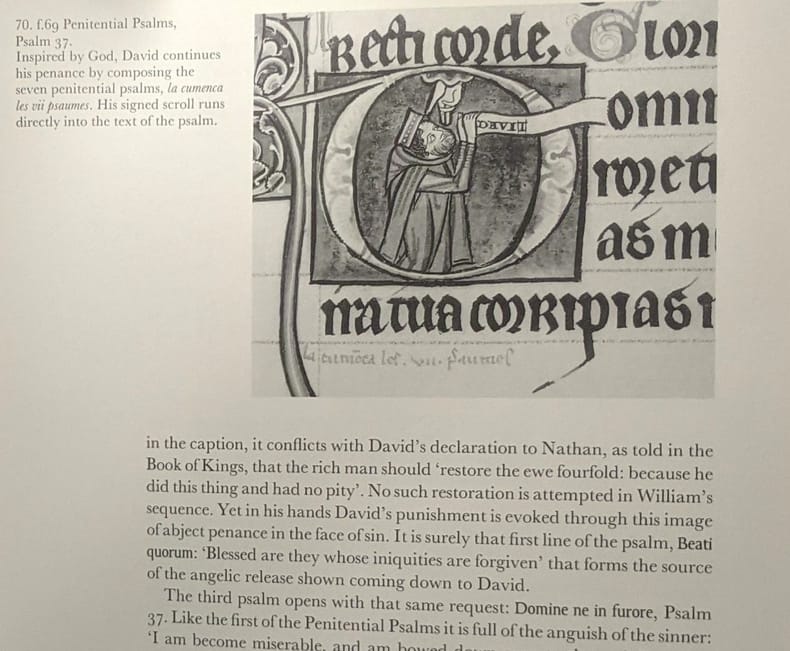 70. f.69 Penitential Psalms,
Psalm 37.
Inspired by God, David continues
his penance by composing the
seven penitential psalms, la cumenca
les vii psaumes. His signed scroll runs
directly into the text of the psalm.
Recti corde, Glori
DAVIT
omin
roreti
as m
ira tua corripias
la cumēca les. vii. psaumes
in the caption, it conflicts with David's declaration to Nathan, as told in the
Book of Kings, that the rich man should 'restore the ewe fourfold: because he
did this thing and had no pity'. No such restoration is attempted in William's
sequence. Yet in his hands David's punishment is evoked through this image
of abject penance in the face of sin. It is surely that first line of the psalm, Beati
quorum: 'Blessed are they whose iniquities are forgiven' that forms the source
of the angelic release shown coming down to David.
The third psalm opens with that same request: Domine ne in furore, Psalm
37. Like the first of the Penitential Psalms it is full of the anguish of the sinner:
'I am become miserable, and am bowed